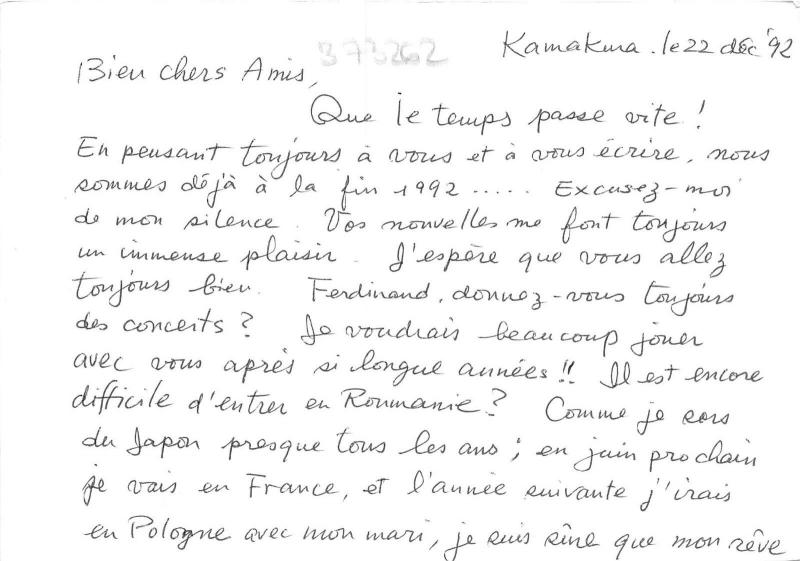 373262
Kamakura. le 22 déc '92
Bien chers Amis,
Que le temps passe vite !
En pensant toujours à vous et à vous écrire, nous
sommes déjà à la fin 1992 ..... Excusez-moi
de mon silence. Vos nouvelles me font toujours
un immense plaisir. J'espère que vous allez
toujours bien. Ferdinand, donnez-vous toujours
des concerts ? Je voudrais beaucoup jouer
avec vous après si longue années !! Il est encore
difficile d'entrer en Roumanie ? Comme je sors
du Japon presque tous les ans ; en juin prochain
je vais en France, et l'année suivante j'irais
en Pologne avec mon mari, je suis sûre que mon rêve